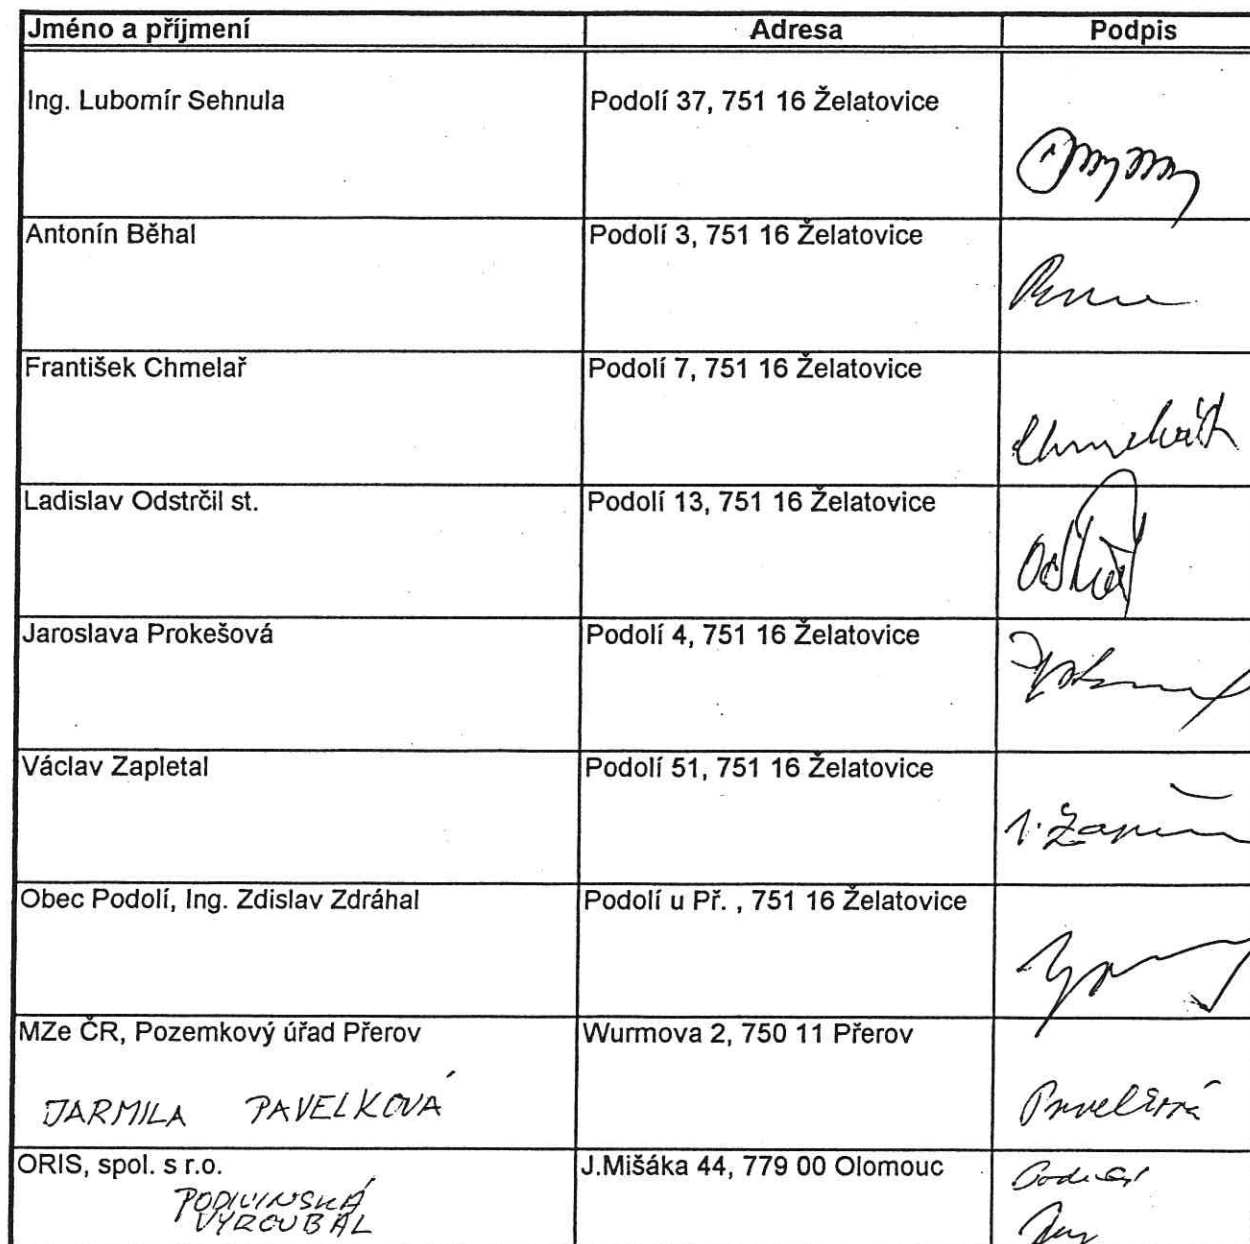 Jméno a příjmení Adresa Podpis
Ing. Lubomír Sehnula Podolí 37, 751 16 Želatovice
Antonín Běhal Podolí 3, 751 16 Želatovice
František Chmelař Podolí 7, 751 16 Želatovice
Ladislav Odstrčil st. Podolí 13, 751 16 Želatovice
Jaroslava Prokešová Podolí 4, 751 16 Želatovice
Václav Zapletal Podolí 51, 751 16 Želatovice
Obec Podolí, Ing. Zdislav Zdráhal Podolí u Př. , 751 16 Želatovice
MZe ČR, Pozemkový úřad Přerov Wurmova 2, 750 11 Přerov
JARMILA PAVELKOVÁ
ORIS, spol. s r.o. J.Mišáka 44, 779 00 Olomouc
PODIVINSKÁ
VYROUBAL